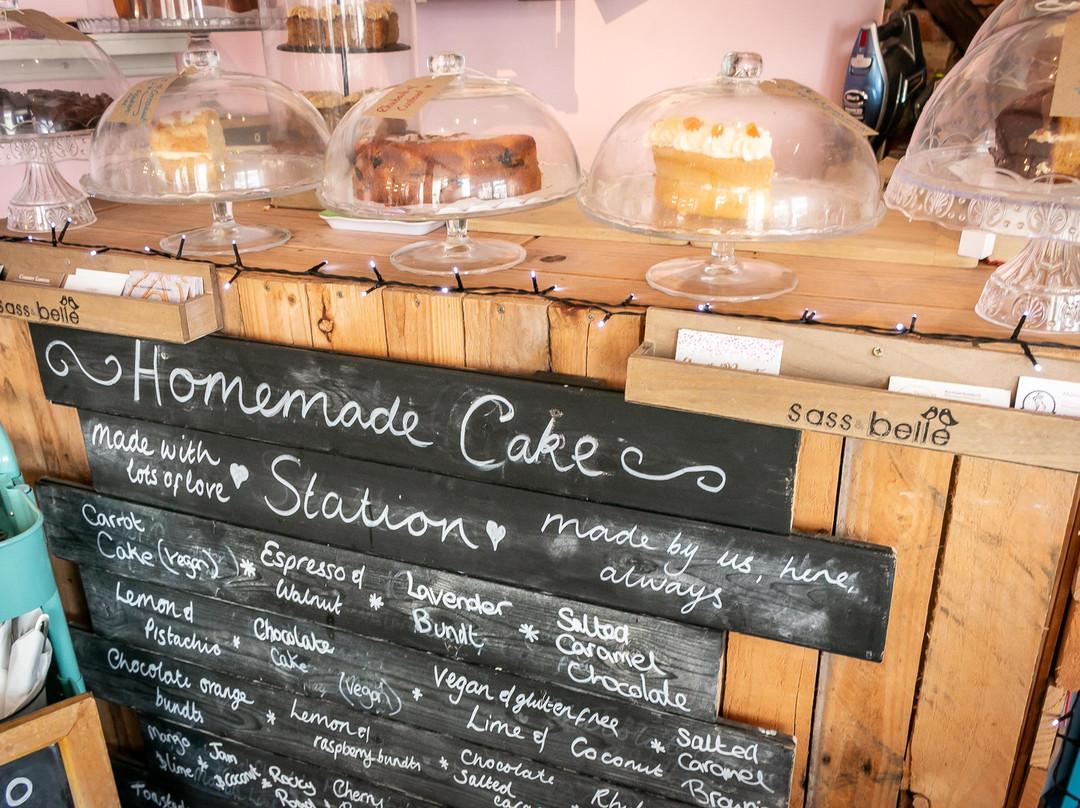 sass & belle
sass & belle
Homemade Cake
made with
lots of love
Station
made by us, here,
always
Carrot
Cake (vegan)
Espresso &
Walnut
Lavender
Bundt
Salted
Caramel
Chocolate
Lemon &
Pistachio
Chocolate
Cake
(vegan)
Vegan & gluten free
Lime & Coconut
Salted
Caramel
Chocolate orange
bundts
Lemon &
raspberry bundts
Chocolate
Salted
Mango
& lime
Jam
& coconut
Rocky
Road
Cherry